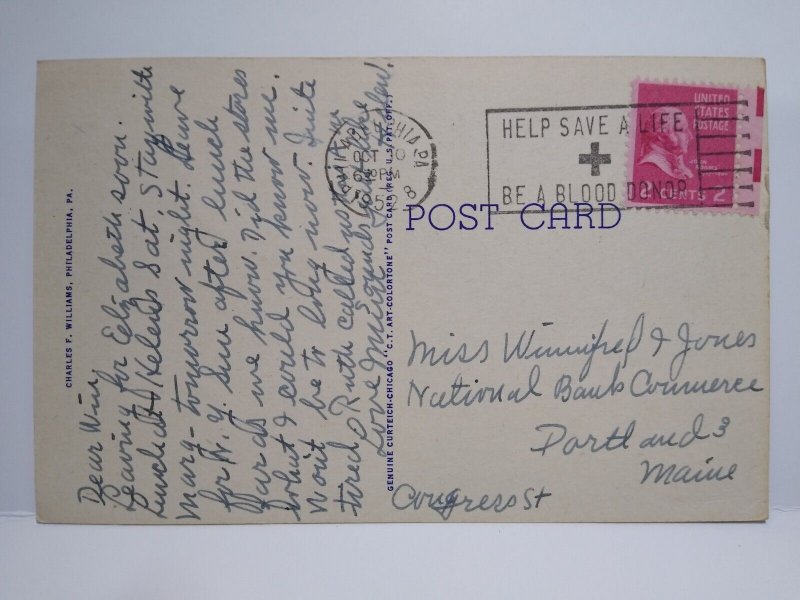 Dear Win,
Leaving for Elizabeth soon.
Lunch at Helens Sat. Stay with
Marg - tomorrow night. Leave
for N.Y. Sun after lunch
far as we know. Did the stores
what I could you know me.
Wont be to long now. Quite
tired. Ruth called us
Love
CHARLES F. WILLIAMS, PHILADELPHIA, PA.
GENUINE CURTEICH-CHICAGO "C.T. ART-COLORTONE" POST CARD (REG. U.S. PAT. OFF.)
PHILADELPHIA PA
OCT
PM
HELP SAVE A LIFE
BE A BLOOD DONOR
UNITED
STATES
POSTAGE
CENTS 2
POST CARD
Miss Winnifred Jones
National Bank Commerce
Portland 3
Maine
Congress St